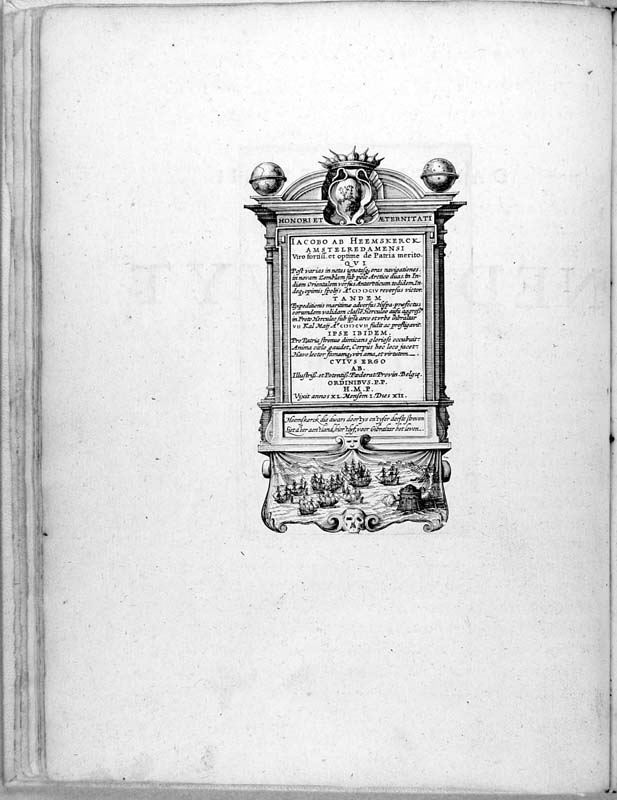 HONORI ET ÆTERNITATI
IACOBO AB HEEMSKERCK
AMSTELREDAMENSI
Viro fortiss. et optime de Patria merito.
QVI
Post varias in notas ignotasq; oras navigationes.
in novam Zemblam sub polo Arctico duas. in In-
diam Orientalem versus Antarcticum totidem, In-
deq; opimis spolijs A.º CIƆIƆCIV reversus victor.
TANDEM
Expeditionis maritimæ adversus Hispa. præfectus
eorundem validam classẽ Herculeo ausu aggress.
in Freto Herculeo sub ipsa arce et urbe Gibraltar
VII Kal. Maij A.º CIƆIƆCVII fudit ac profligavit.
IPSE IBIDEM.
Pro Patria strenue dimicans gloriose occubuit:
Anima cælo gaudet, Corpus hoc loco jacet:
Have lector famamq; viri ama, et virtutem.
CVIVS ERGO
AB.
Illustriss. et Potentiss. Fæderat. Provin. Belgię.
ORDINIBVS. P.P.
H.M.P.
Vixit annos XL. Mensem I. Dies XII.
Heemskerck die dwars door t'ys en t'yser dorste streven
Liet d'eer aen t'land, hier t'lyf, voor Gibraltar het leven.